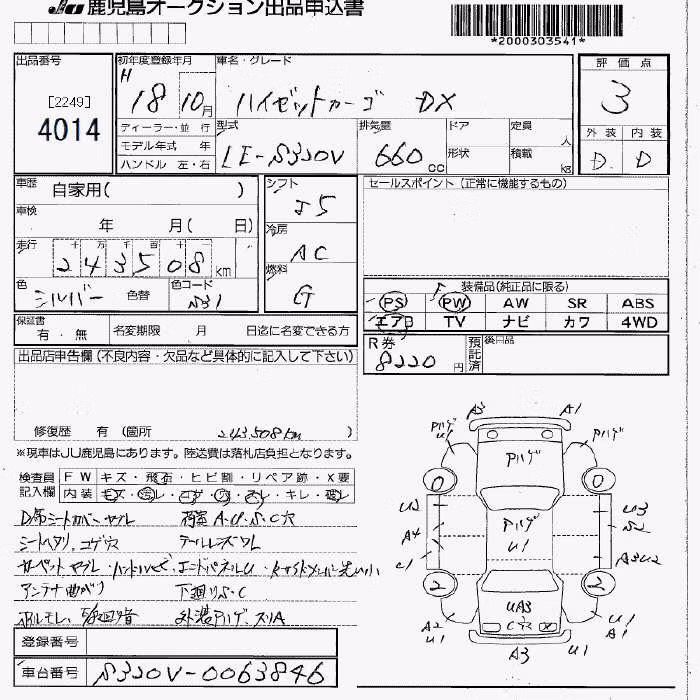 JU 鹿児島オークション出品申込書
*2000303541*
出品番号
[2249]
4014
初年度登録年月
H 18 10月
車名・グレード
ハイゼットカーゴ DX
評価点
3
外装 内装
D D
ディーラー・並行
モデル年式 年
ハンドル 左・右
型式
LE-S320V
排気量
660cc
ドア
形状
定員 人
積載 kg
車歴 自家用( )
車検
年 月( 日)
走行 十 万 千 百 十 一
243508km
色
シルバー 色替
色コード
S31
シフト
I5
冷房
AC
燃料
G
セールスポイント (正常に機能するもの)
装備品(純正品に限る)
PS PW AW SR ABS
エアB TV ナビ カワ 4WD
保証書
有・無
名変期限 月 日迄に名変できる方
R券
8220円
預託済
後日品
出品店申告欄(不良内容・欠品など具体的に記入して下さい)
修復歴 有 (箇所 243,508km )
※現車はJU鹿児島にあります。陸送費は落札店負担となります。
検査員記入欄
FW キズ・飛石・ヒビ割・リペア跡・X要
内装 キズ・汚レ・コゲ・穴・スレ・キレ・破レ
D席シートカバーヤブレ 荷室A・U・S・C穴
シートヘタリ、コゲ穴 テールレンズワレ
カーペットヤブレ・ エンドパネルU・
アンテナ曲がり 下廻りS・C
オイルモレ、 外装Pハゲ・スリA
登録番号
車台番号 S320V-0063846
A3 A1
Pハゲ U1
Pハゲ
Pハゲ
0 0
U2 U3
S2
Pハゲ U1
A4
A3U2
U1
2 2
UA3
C穴 X
A2 U1
U1 A1
A3 U1